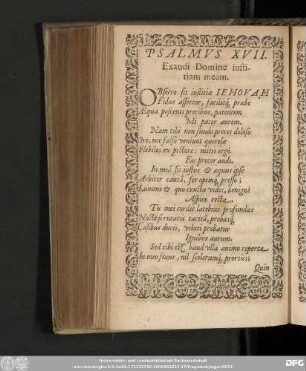 PSALMVS XVII.
Exaudi Domine iusti-
tiam meam.
OBsecro sis iustitia IEHOVAH
Fidus assertor, facilemq́; præbe
Æqua poscentis precibus, patentem
Mi pater aurem.
Nam tibi non fundo preces doloso
Ore, nec falso veniunt querelæ
Flebiles ex pectore: mitis ergo
Fac precor audi.
In mea sis iustus & æquus ipse
Arbiter causa, fer opemq́;
Lumine & quo cuncta vides, benigno
Aspice recta.
Tu mei cordis latebras profundas
Nocte scrutaris tacita, probasq́;
Casibus duris, veluti probatur
Ignibus aurum.
Sed tibi est haud ulla animo reperta
In meo fraus, nil scelerumq́; prorsus:
Quin
DFG